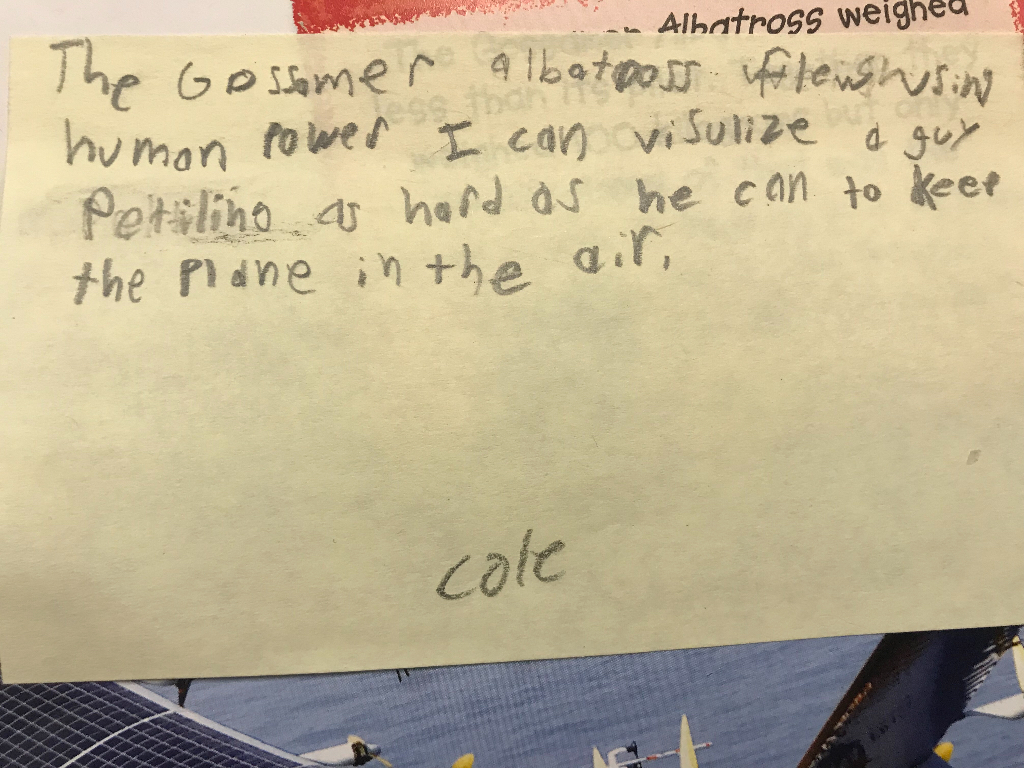 Albatross weighed
The Gossamer albatross flew using
human power I can visulize a guy
Petiling as hard as he can to keep
the plane in the air.
cole